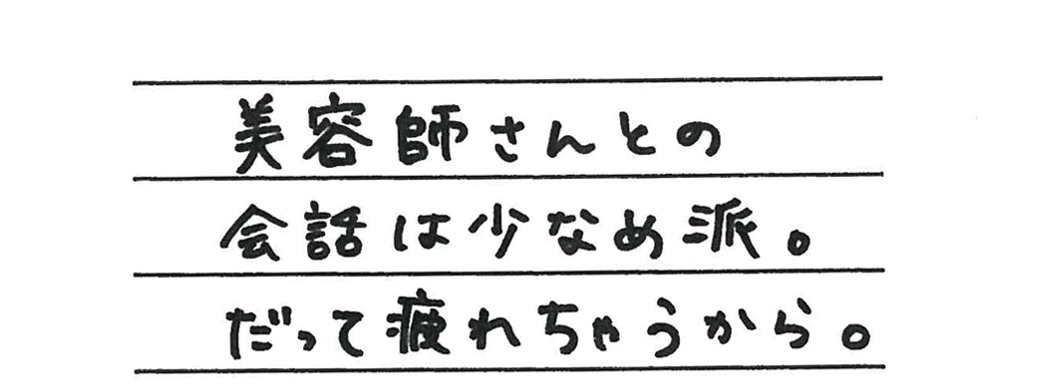 美容師さんとの
会話は少なめ派。
だって疲れちゃうから。